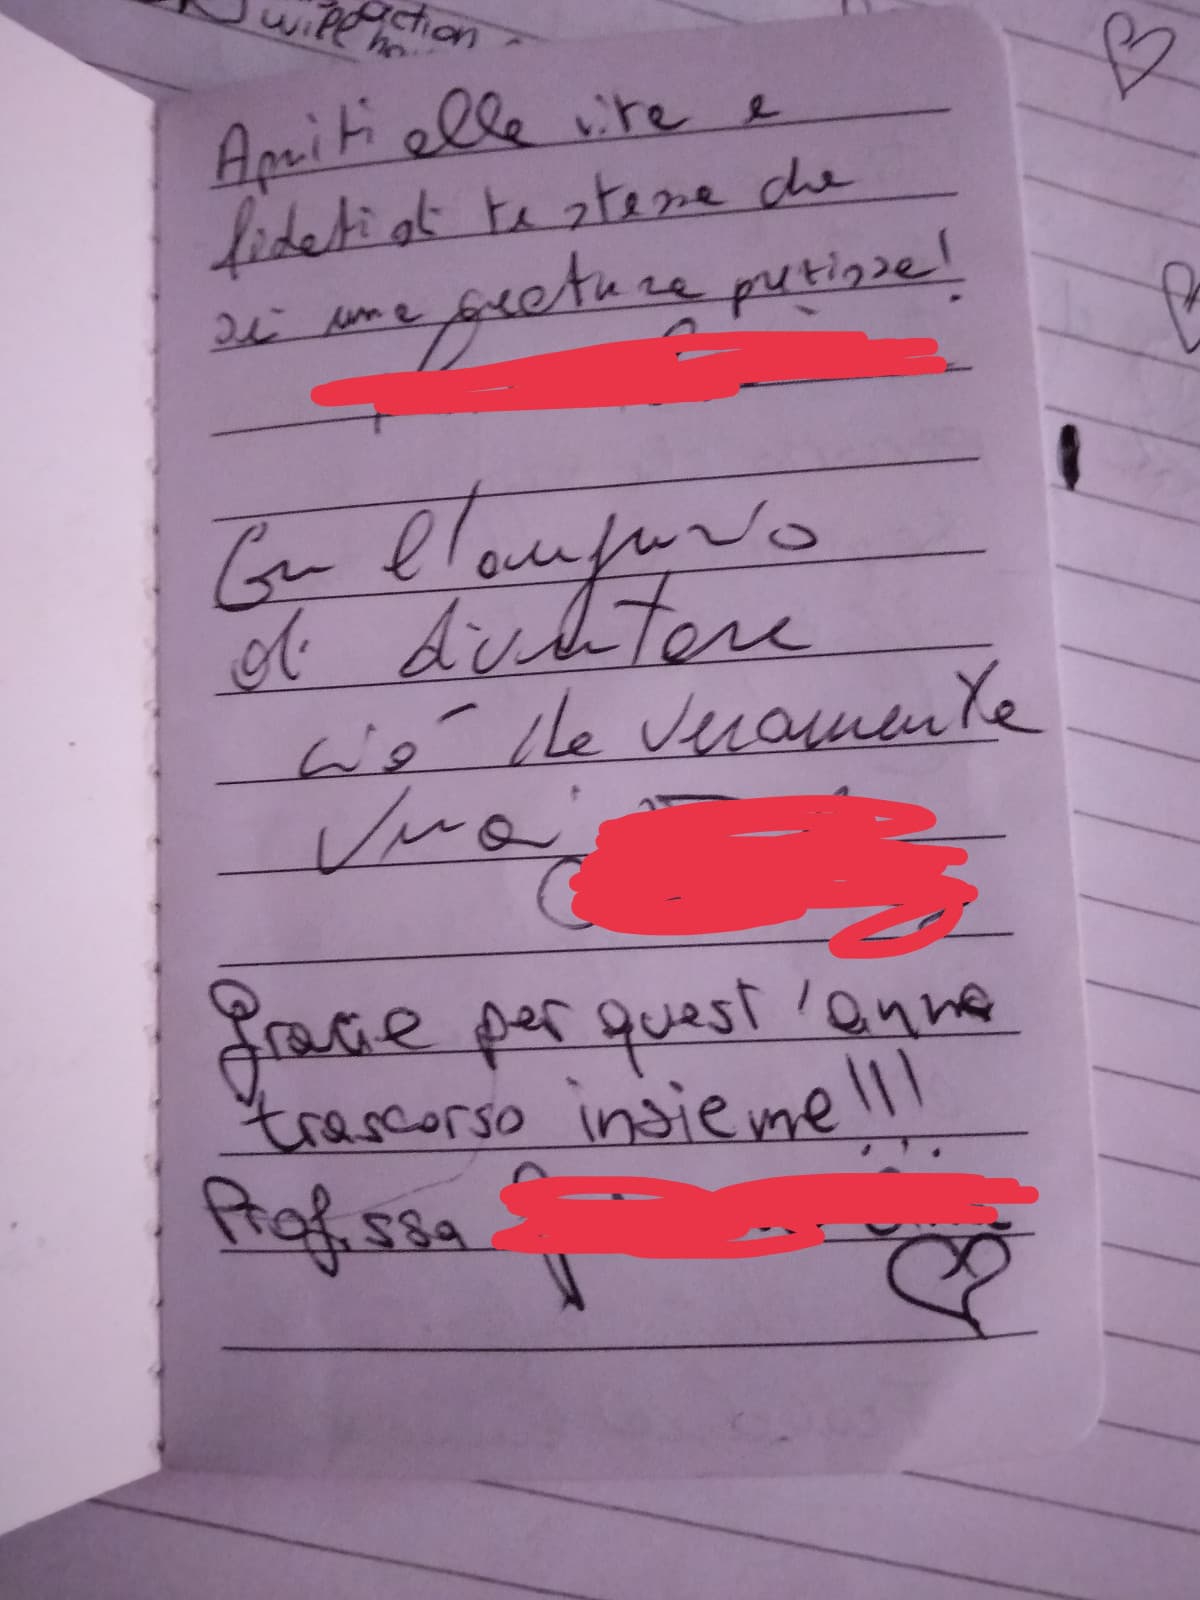 will
action
Apriti alla vita e
fidati di te stessa che
sei una creatura preziosa!
Con l'augurio
di diventare
ciò che veramente
vuoi
Grazie per quest'anno
trascorso insieme!!!
Prof.ssa